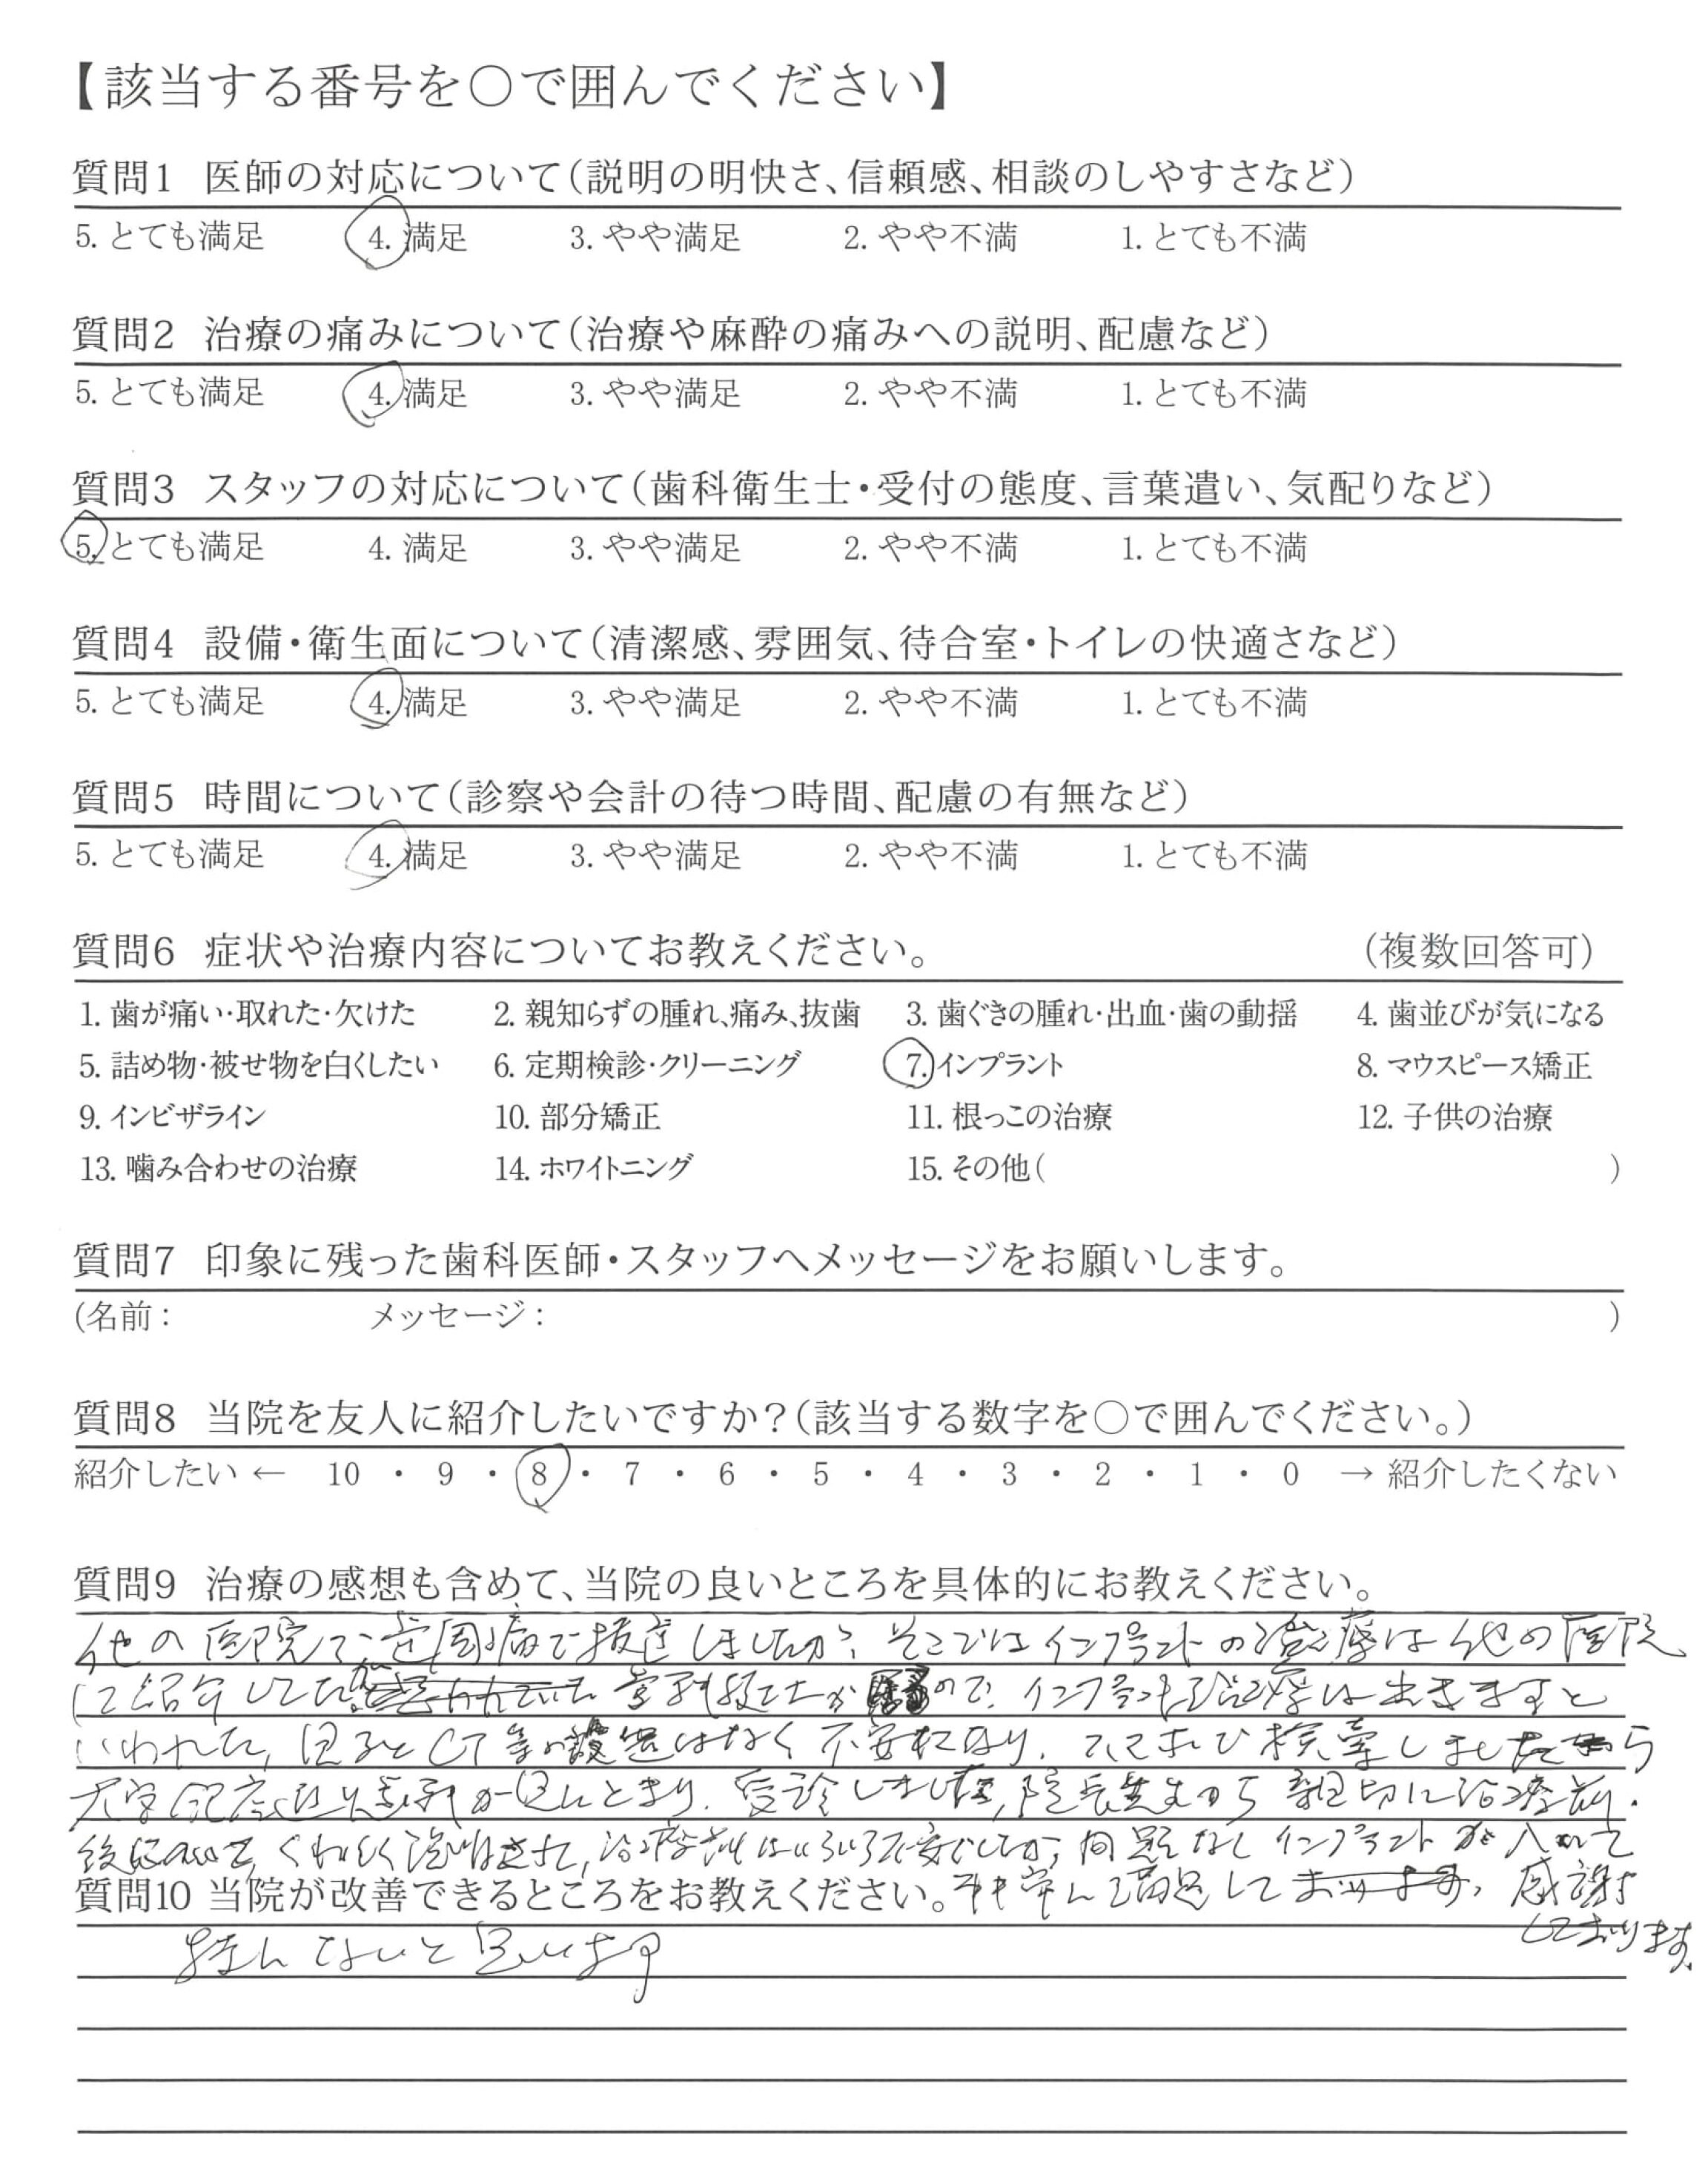 【該当する番号を○で囲んでください】
質問1 医師の対応について(説明の明快さ、信頼感、相談のしやすさなど)
5. とても満足 4. 満足 3. やや満足 2. やや不満 1. とても不満
質問2 治療の痛みについて(治療や麻酔の痛みへの説明、配慮など)
5. とても満足 4. 満足 3. やや満足 2. やや不満 1. とても不満
質問3 スタッフの対応について(歯科衛生士・受付の態度、言葉遣い、気配りなど)
5. とても満足 4. 満足 3. やや満足 2. やや不満 1. とても不満
質問4 設備・衛生面について(清潔感、雰囲気、待合室・トイレの快適さなど)
5. とても満足 4. 満足 3. やや満足 2. やや不満 1. とても不満
質問5 時間について(診察や会計の待つ時間、配慮の有無など)
5. とても満足 4. 満足 3. やや満足 2. やや不満 1. とても不満
質問6 症状や治療内容についてお教えください。 (複数回答可)
1. 歯が痛い・取れた・欠けた 2. 親知らずの腫れ、痛み、抜歯 3. 歯ぐきの腫れ・出血・歯の動揺 4. 歯並びが気になる
5. 詰め物・被せ物を白くしたい 6. 定期検診・クリーニング 7. インプラント 8. マウスピース矯正
9. インビザライン 10. 部分矯正 11. 根っこの治療 12. 子供の治療
13. 噛み合わせの治療 14. ホワイトニング 15. その他( )
質問7 印象に残った歯科医師・スタッフへメッセージをお願いします。
(名前: メッセージ: )
質問8 当院を友人に紹介したいですか?(該当する数字を○で囲んでください。)
紹介したい ← 10 ・ 9 ・ 8 ・ 7 ・ 6 ・ 5 ・ 4 ・ 3 ・ 2 ・ 1 ・ 0 → 紹介したくない
質問9 治療の感想も含めて、当院の良いところを具体的にお教えください。
他の医院で、歯周病で抜歯しましたが、そこではインプラントの治療は他の医院
に紹介してた が ので、インプラント治療は出きますと
いわれた, 見るとCT等の設備はなく不安になり、スマホで検索しましたら
が目にとまり、受診しました, 院長先生から親切に治療前・
後について, くわしく説明され, 治療前はいろいろ不安でしたが, 問題なしインプラントが入って
質問10 当院が改善できるところをお教えください。 満足して 、感謝
しております。
特にないと思います